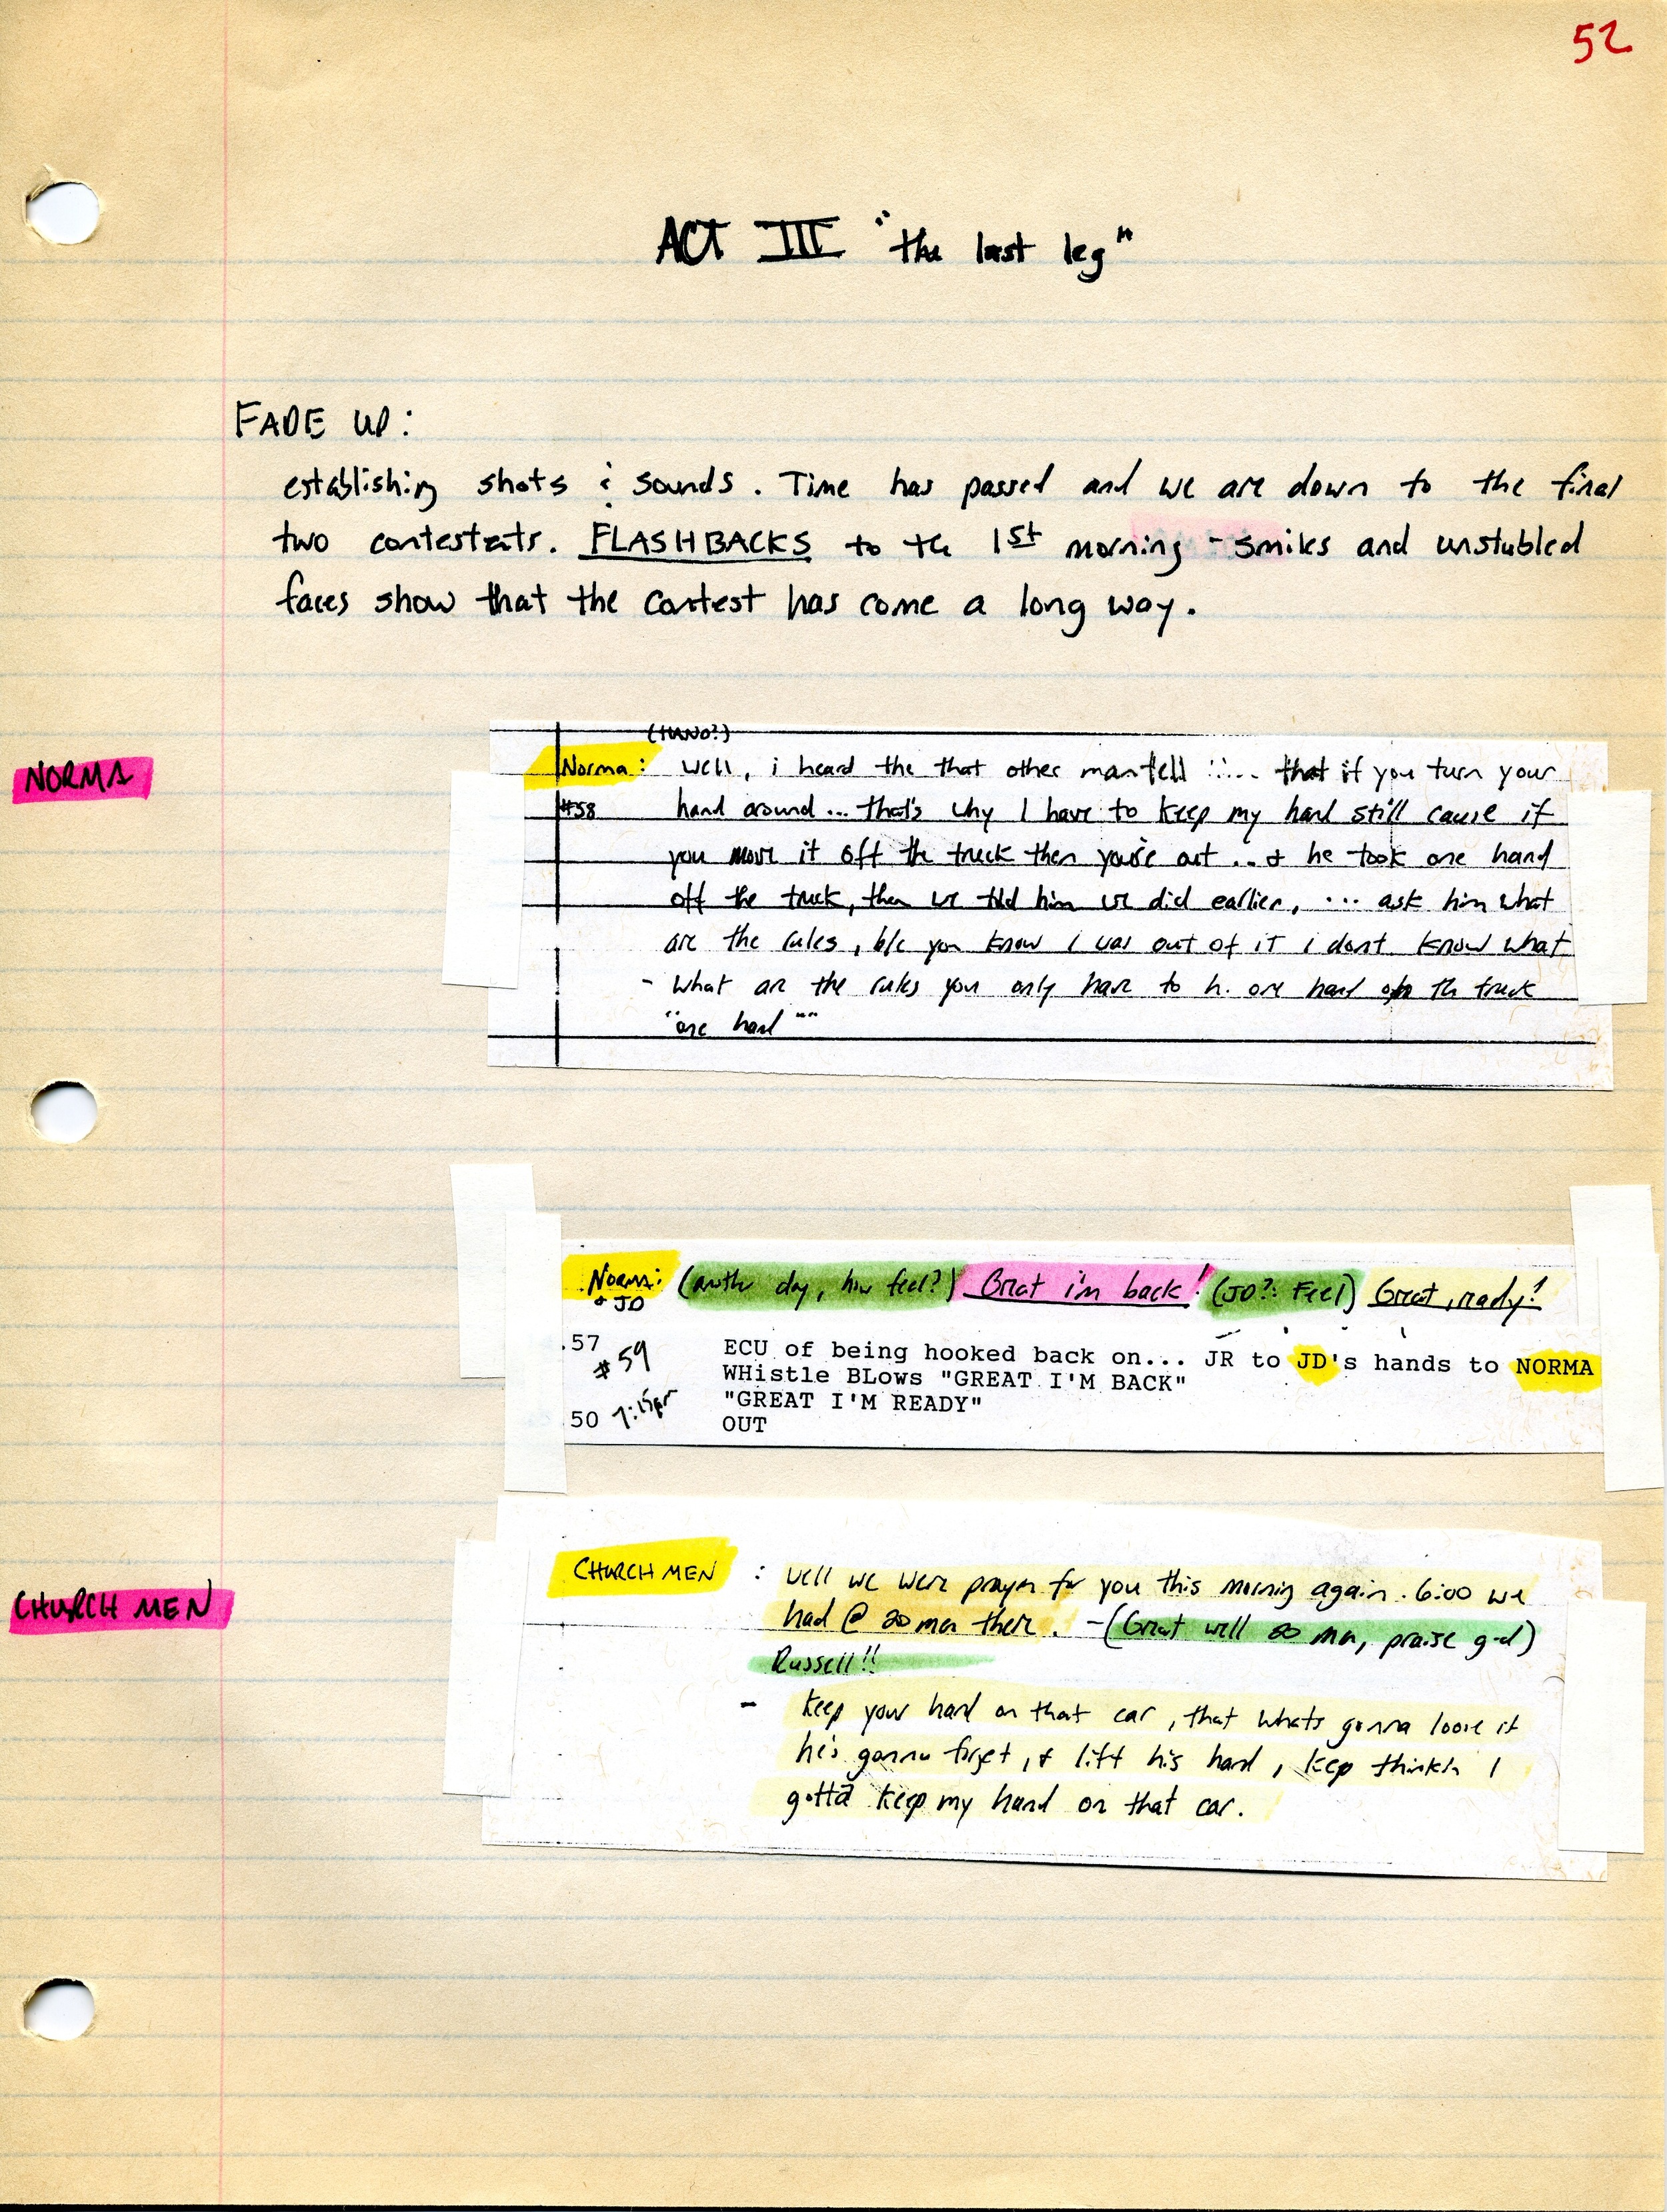 52
ACT III "the last leg"
FADE UP:
establishing shots & sounds. Time has passed and we are down to the final
two contestents. FLASHBACKS to the 1st morning - smiles and unstubled
faces show that the contest has come a long way.
NORMA
(HAND?)
Norma: well, i heard the that other man tell ..... that if you turn your
#58 hand around... that's why I have to keep my hand still cause if
you move it off the truck then you're out ... & he took one hand
off the truck, then we told him we did earlier, ... ask him what
are the rules, b/c you know i was out of it i dont know what
- what are the rules you only have to h. one hand on the truck
"one hand""
Norma: (anoth day, how feel?) Great i'm back! (JD?: Feel) Great, ready!
& JD
.57 ECU of being hooked back on... JR to JD's hands to NORMA
#59 WHistle BLows "GREAT I'M BACK"
"GREAT I'M READY"
50 7:15pm OUT
CHURCH MEN
CHURCH MEN : well we were prayen for you this morning again. 6:00 we
had @ 20 men there. -(Great well 20 men, praise g-d)
Russell!!
- keep your hand on that car, that whats gonna loose it
he's gonna forget, & lift his hand, keep thinkin I
gotta keep my hand on that car.